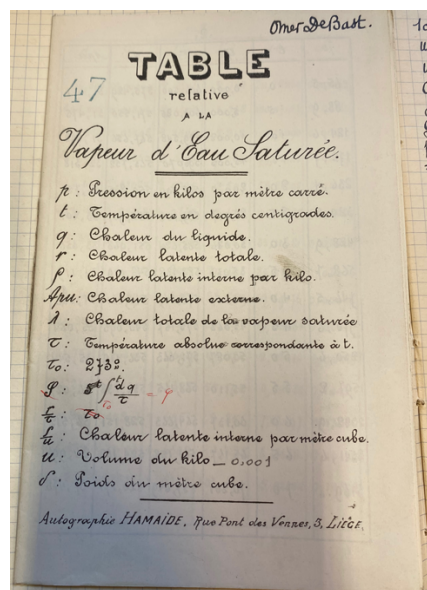 Omer De Bast.
TABLE
47
relative
A LA
Vapeur d'Eau Saturée.
p : Pression en kilos par mètre carré.
t : Température en degrés centigrades.
q : Chaleur du liquide.
r : Chaleur latente totale.
ρ : Chaleur latente interne par kilo.
Apu : Chaleur latente externe.
λ : Chaleur totale de la vapeur saturée
τ : Température absolue correspondante à t.
τo : 273°.
φ : ∫ dq/τ = φ
r/τ :
ρ/u : Chaleur latente interne par mètre cube.
u : Volume du kilo _ 0,001
δ : Poids du mètre cube.
Autographie HAMAIDE, Rue Pont des Vennes, 3, LIÈGE.